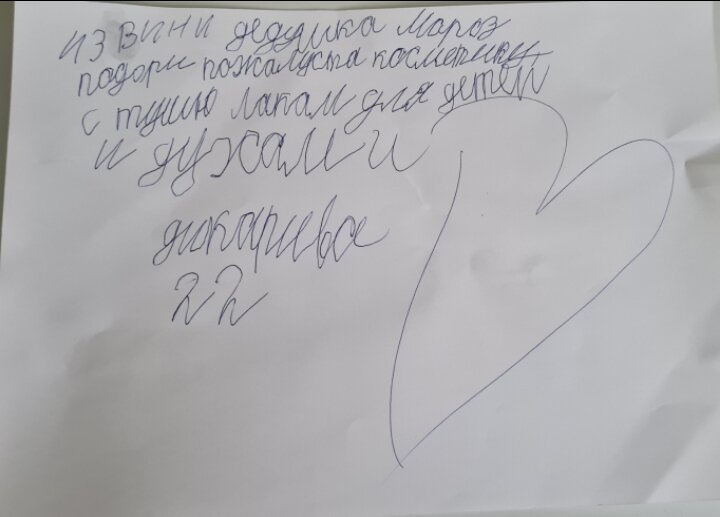 ИЗВИНИ дедушка Мароз
падори пожалуста косметику
с тушю лакам для детей
и духами
22